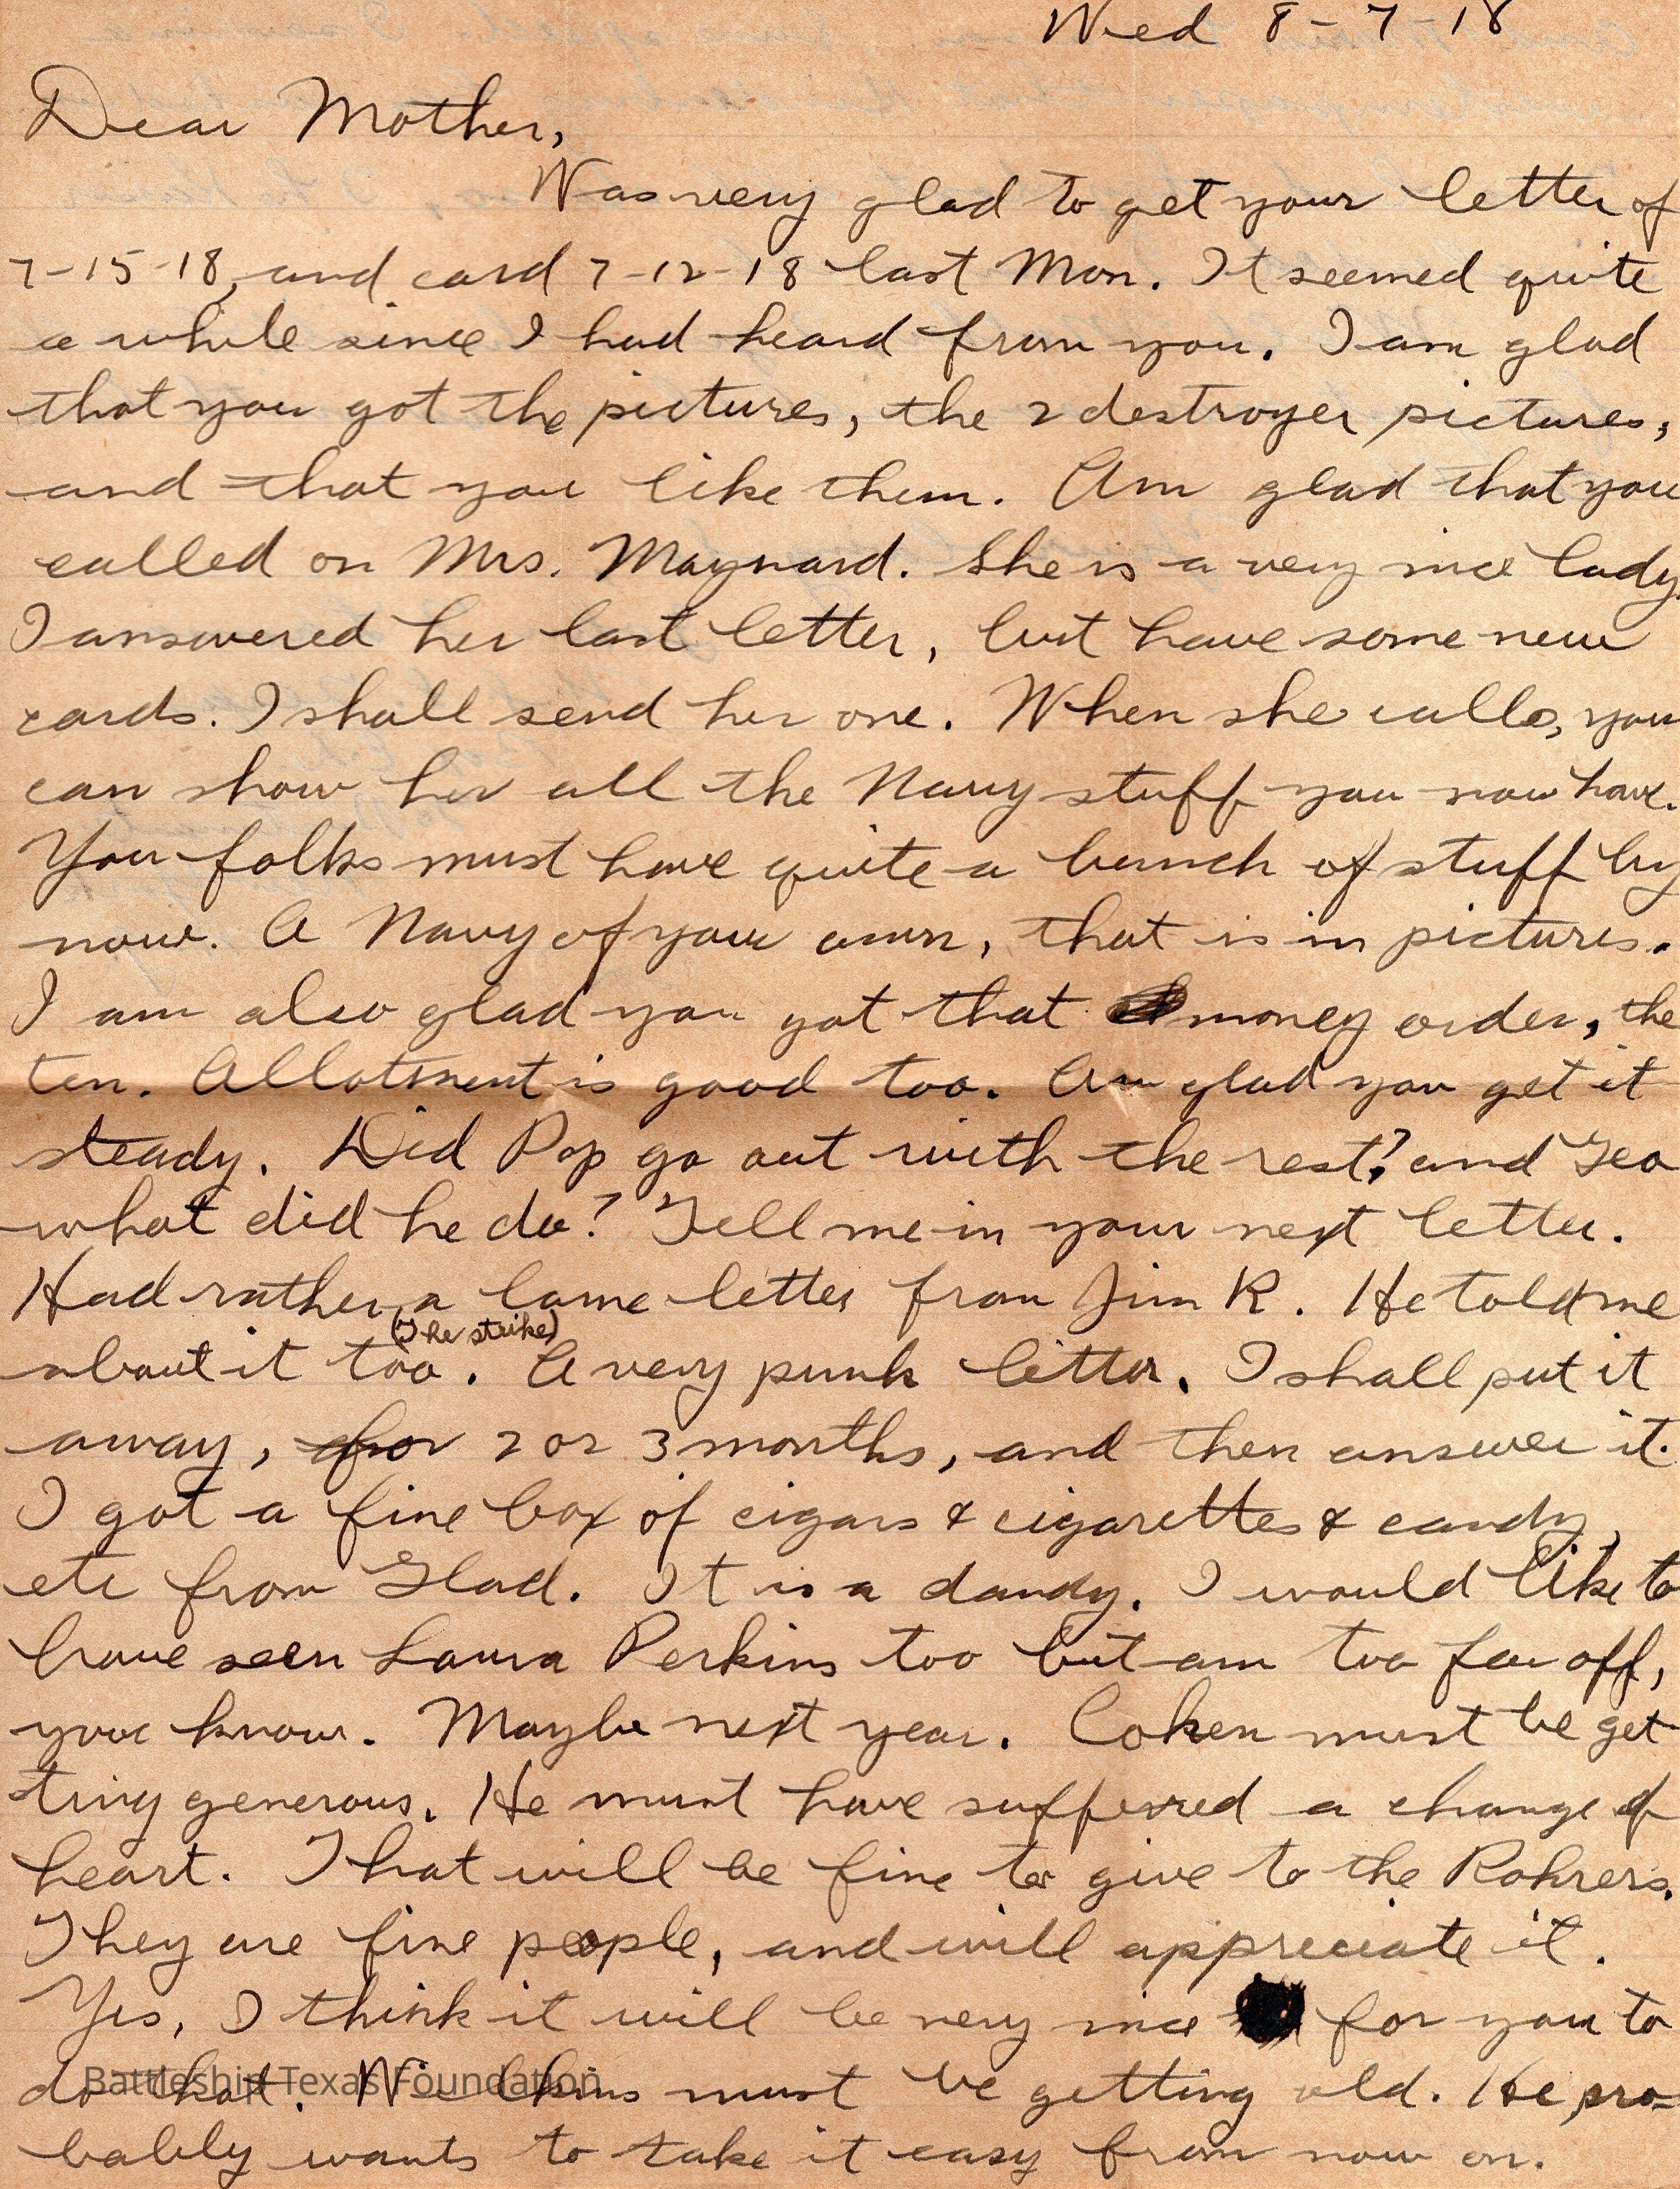 Wed 8-7-18
Dear Mother,
Was very glad to get your letter of
7-15-18, and card 7-12-18 last Mon. It seemed quite
a while since I had heard from you. I am glad
that you got the pictures, the 2 destroyer pictures,
and that you like them. Am glad that you
called on Mrs. Maynard. She is a very nice lady.
I answered her last letter, but have some new
cards. I shall send her one. When she calls, you
can show her all the Navy stuff you now have.
You folks must have quite a bunch of stuff by
now. A Navy of your own, that is in pictures.
I am also glad you got that money order, the
ten. Allotment is good too. Am glad you get it
steady. Did Pop go out with the rest? and Geo
what did he do? Tell me in your next letter.
Had rather a lame letter from Jim R. He told me
(The strike)
about it too. A very punk letter. I shall put it
away, for 2 or 3 months, and then answer it.
I got a fine box of cigars & cigarettes & candy,
etc from Glad. It is a dandy. I would like to
have seen Laura Perkins too but am too far off,
you know. Maybe next year. Cohen must be get-
ting generous. He must have sufferred a change of
heart. That will be fine to give to the Rohrers.
They are fine people, and will appreciate it.
Yes, I think it will be very nice for you to
do that. must be getting old. He pro=
bably wants to take it easy from now on.
Battleship Texas Foundation